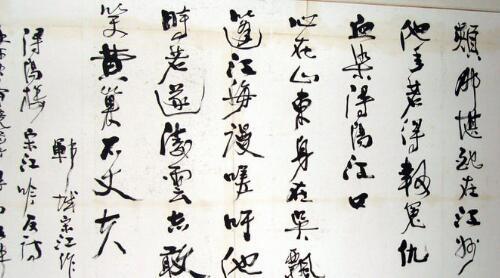 頰那堪配在江州
他年若得報冤仇
血染潯陽江口
心在山東身在吳飄
蓬江海漫嗟吁他
時若遂凌雲志敢
笑黄巢不丈夫
鄆城宋江作
潯陽樓宋江吟反詩